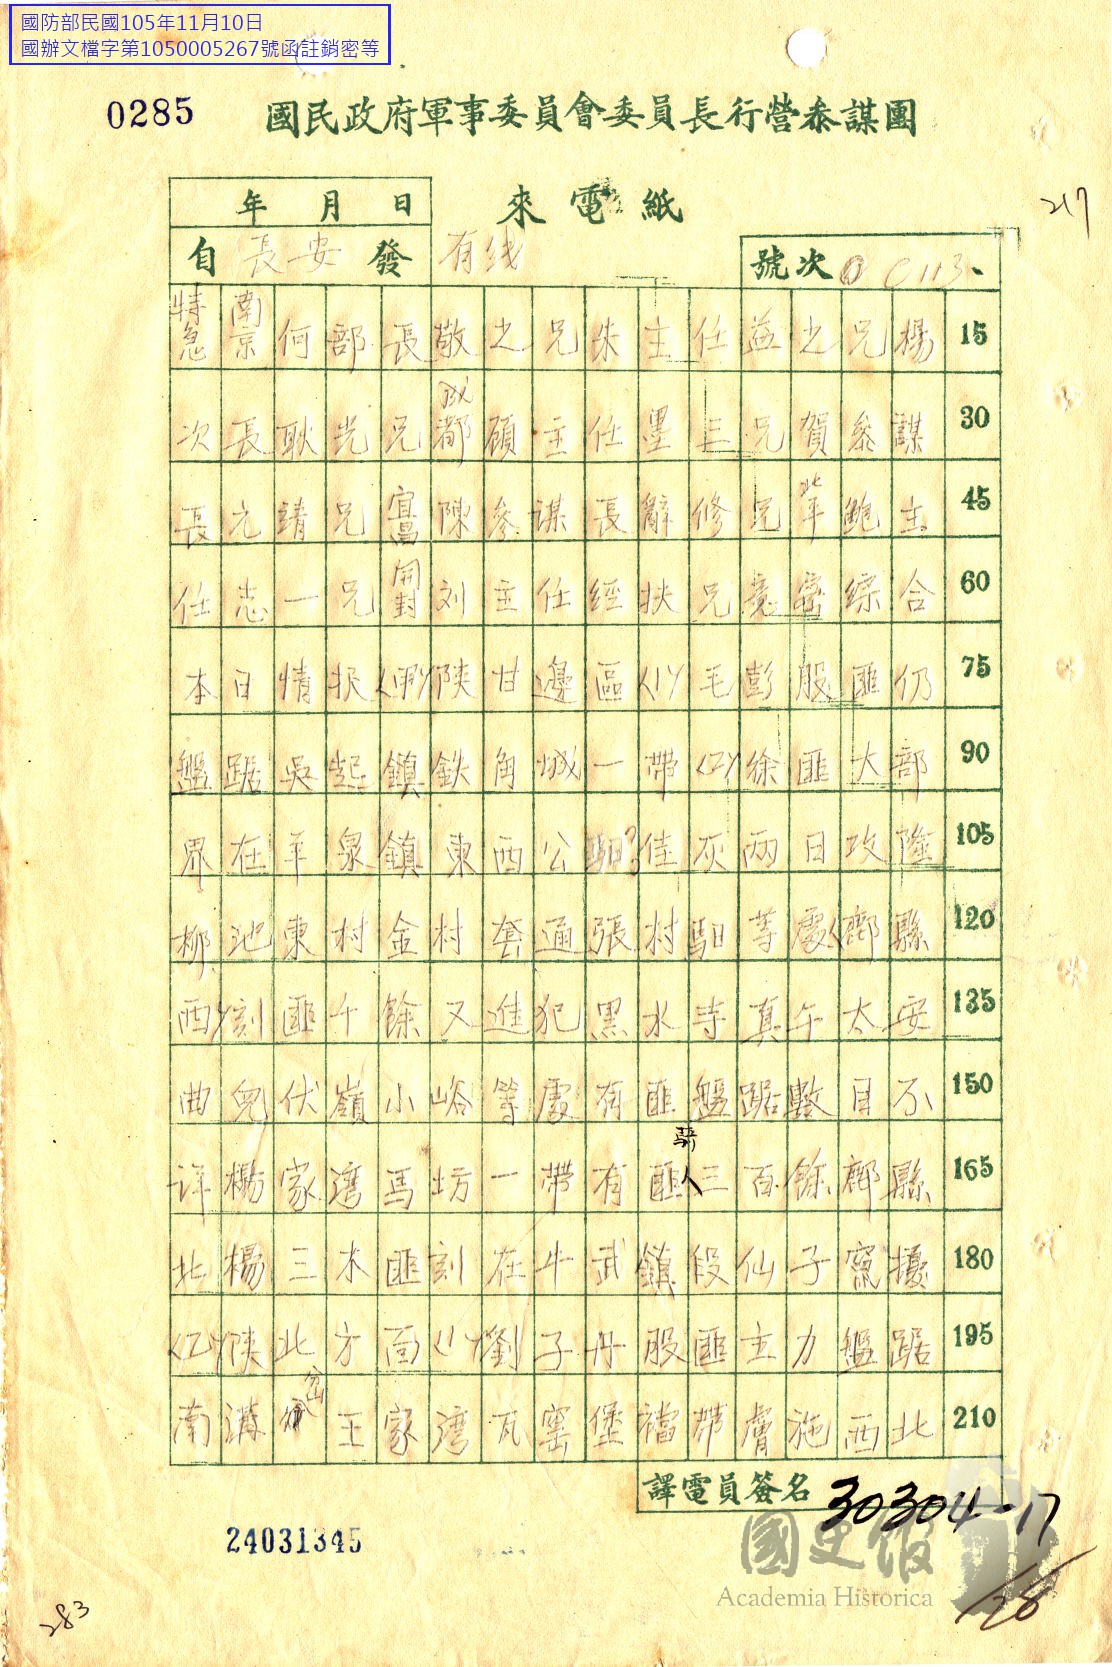 國防部民國105年11月10日
國辦文檔字第1050005267號函註銷密等
0285
國民政府軍事委員會委員長行營叅謀團
217
年 月 日
來電紙
自長安發 有线
號次 C113、
特急南京何部長敬之兄朱主任益之兄楊 15
次長耿光兄成都顧主任墨三兄賀參謀 30
長元靖兄宜昌陳參謀長辭修兄北平鮑主 45
任志一兄開封刘主任經扶兄密綜合 60
本日情报〈甲〉陝甘邊區〈1〉毛彭股匪仍 75
盤踞吳起鎮鉄角城一帶〈2〉徐匪大部 90
在平泉鎮東西公佳灰兩日攻隆 105
柳池東村金村套通張村馹等處〈鄜縣 120
西〉刻匪千餘又進犯黑水寺真午太安 135
曲兒伏嶺小峪等處有匪盤踞數目不 150
详楊家灣馬坊一帶有匪騎三百餘鄜縣 165
北楊三木匪刻在牛武鎮段仙子窩擾 180
〈乙〉陝北方面〈1〉劉子丹股匪主力盤踞 195
南溝王家灣瓦窑堡襠帶膚施西北 210
譯電員簽名
30304-17
28
24031345
283
國史館
Academia Historica